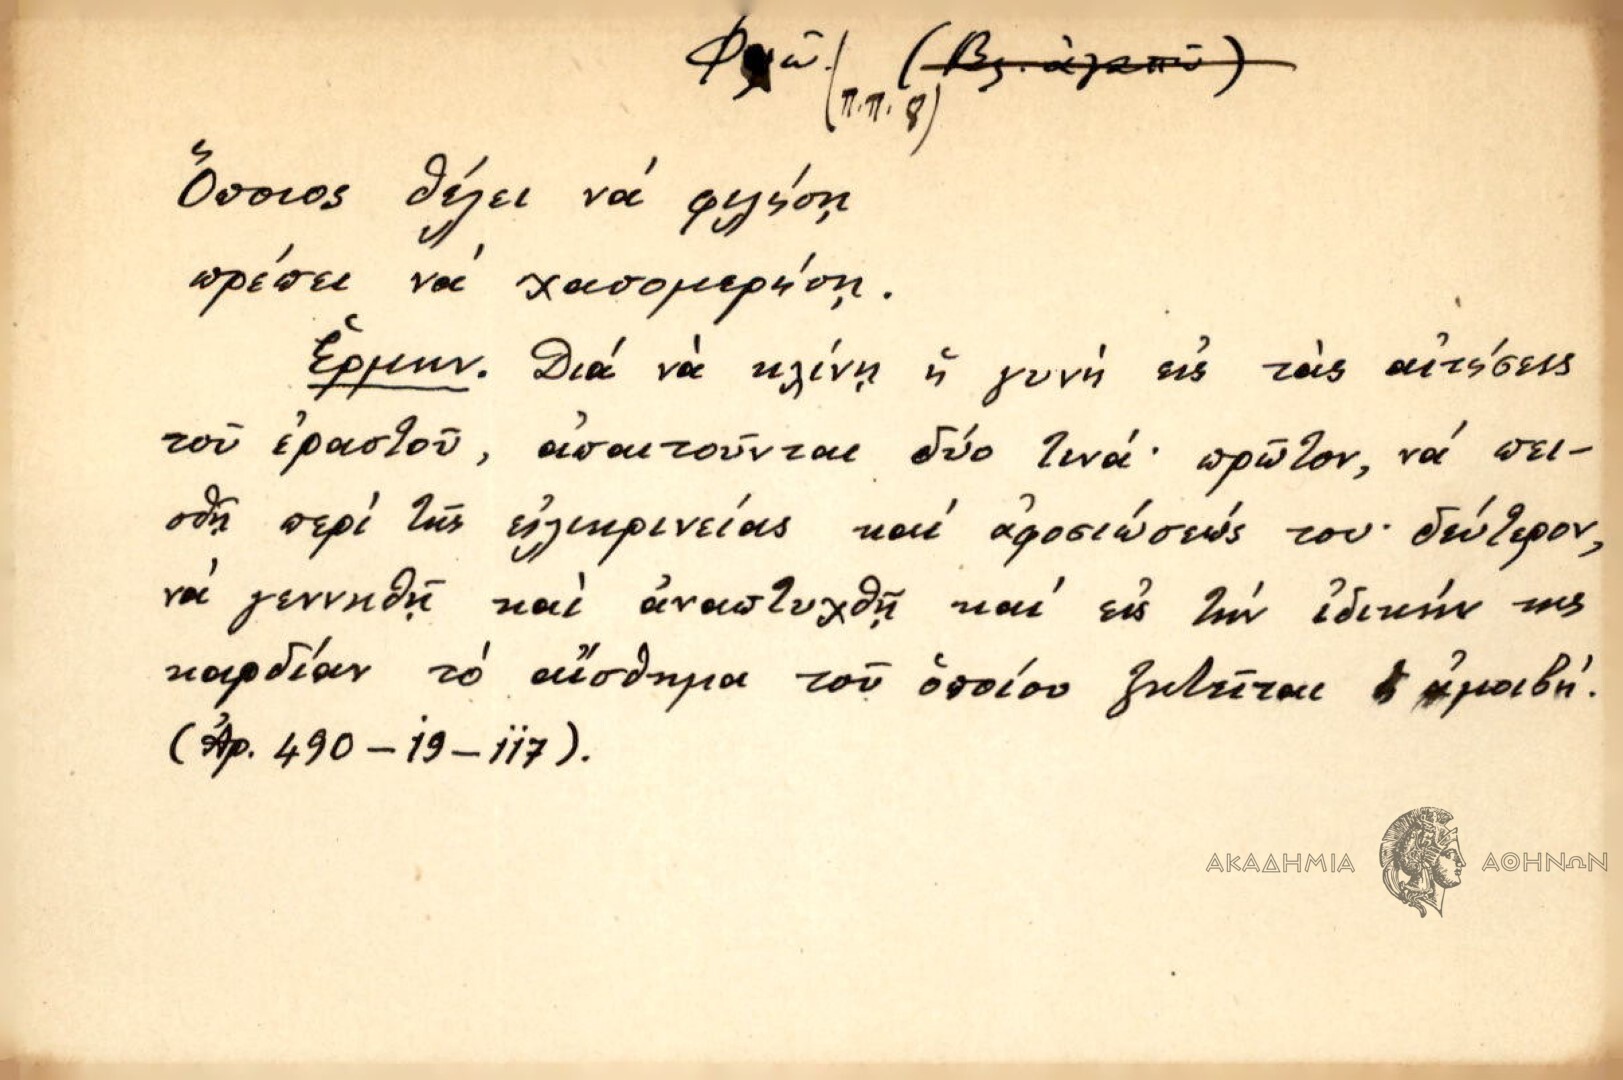 Φιλῶ. (Βλ. ἀγαπῶ)
(π.π. 8)
Ὅποιος θέλει νά φιλήσῃ
πρέπει νά χασομερήσῃ.
Ἑρμην. Διά νὰ κλίνῃ ἡ γυνή εἰς τὰς αἰτήσεις
τοῦ ἐραστοῦ, ἀπαιτοῦνται δύο τινά· πρῶτον, νά πει-
σθῇ περί τῆς εἰλικρινείας καί ἀφοσιώσεώς του· δεύτερον,
νά γεννηθῇ καὶ ἀναπτυχθῇ καί εἰς τήν ἰδικήν της
καρδίαν τό αἴσθημα τοῦ ὁποίου ζητεῖται ἡ ἀμοιβή.
(Ἀρ. 490-19-117).
ΑΚΑΔΗΜΙΑ ΑΘΗΝΩΝ